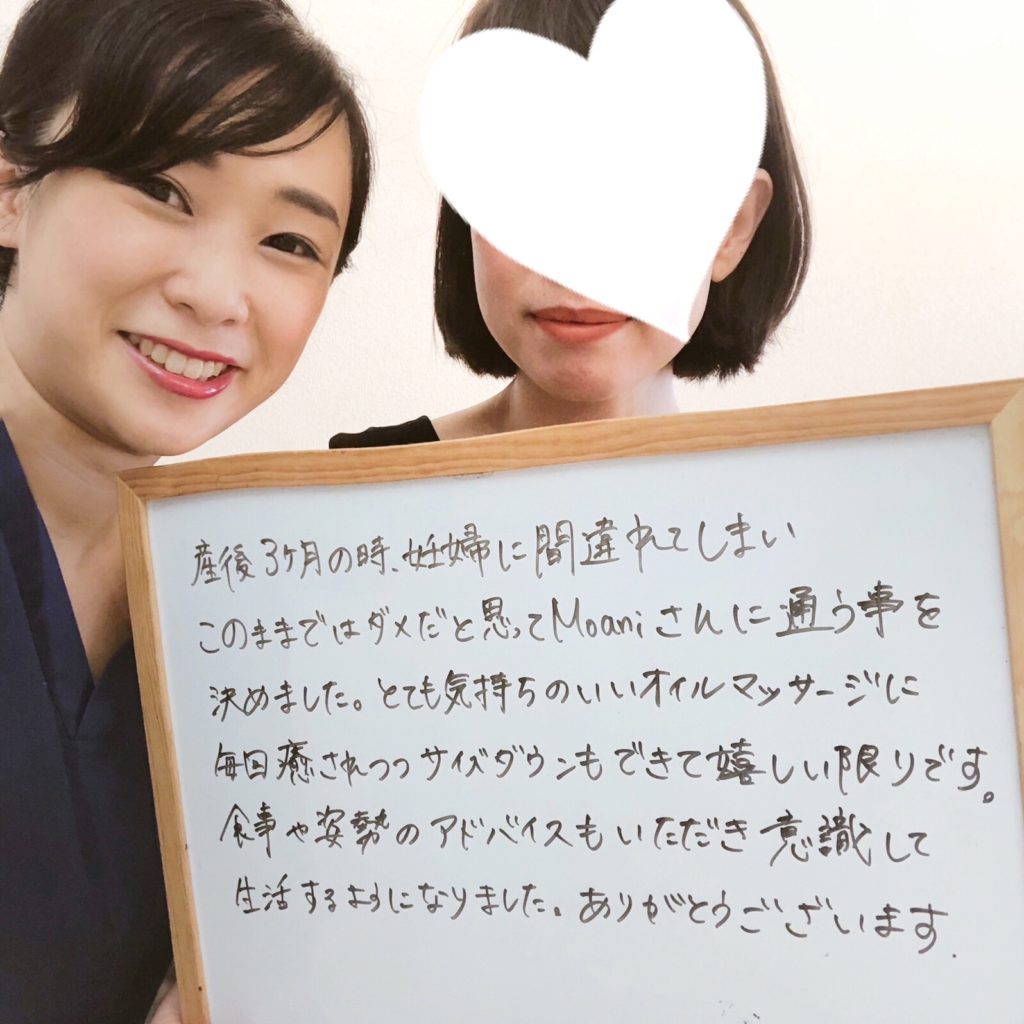 産後3ヶ月の時、妊婦に間違れてしまい
このままではダメだと思ってMoaniさんに通う事を
決めました。とても気持ちのいいオイルマッサージに
毎回癒されつつサイズダウンもできて嬉しい限りです。
食事や姿勢のアドバイスもいただき意識して
生活するようになりました。ありがとうございます.